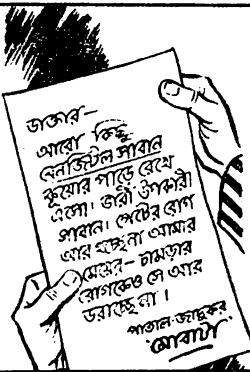 ডাক্তার—
আরো কিছু
মেনজিটল সাবান
কুয়োর পাড়ে রেখে
এসো। ভারী উপকারী
সাবান। পেটের রোগ
আর হচ্ছে না আমার
মেয়ের— চামড়ার
রোগকেও সে আর
ডরাচ্ছে না।
পাতাল-জাদুকর